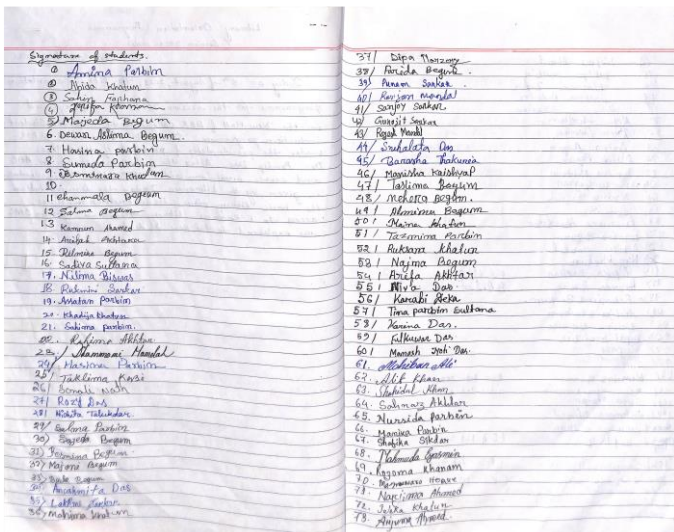 Signature of students.
① Amina Parbin
② Abida Khatun
③ Sahin Farhana
④ Khanam
⑤ Majeda Begum
6. Dewan Aslima Begum.
7. Hasina parbin
8. Sumeda Parbin
9. Khatun
10.
11 Chanmala Begum
12 Salma Begum
13 Kamrun Ahamed
14.
15. Relmina Begum
16. Sadiya Sultana
17. Nilima Biswas
18 Rukmini Sarkar
19. Assatan Parbin
20. Khadija Khatun
21. Sahima parbin.
22. Rahima Akhtar
23/ Mandal
24/ Hasina Parbin
25/ Taklima Kazi
26/ Sonali Nath
27/ Rozy Das
28/ Nishita Talukdar
29/ Salma Parbin
30) Sazeda Begum
31) Begum
32) Majoni Begum
33) Begum
34) Anashmita Das
35) Lakhi Sarkar
36) Mahima Khatun
37/ Dipa
38/ Farida Begum.
39/ Punam Sarkar.
40/ Ranjan mandal
41/ Sanjoy Sarkar
42/ Sarkar
43/ Mandal
44/ Snehalata Das
45/ Barasha Thakuria
46/ Manisha Kaishyap
47/ Taslima Begum
48/ Mehera Begum.
49/ Begum
50/ Maina Khatun
51/ Tazmina Parbin
52/ Ruksana Khatun
53/ Najma Begum
54/ Arifa Akhtar
55/ Niva Das
56/ Karabi Deka
57/ Tina parbin Sultana
58/ Karina Das.
59/ Fulkuwar Das
60/ Das.
61. Ali
62. Alif Khan
63. Shahidul Khan
64. Sahnaz Akhtar
65. Nursida parbin
66. Manika Parbin
67. Shafika Sikdar
68. Mahmuda Yasmin
69. Khanam
70.
71. Ahmed
72. Khatun
73. Ahmed.